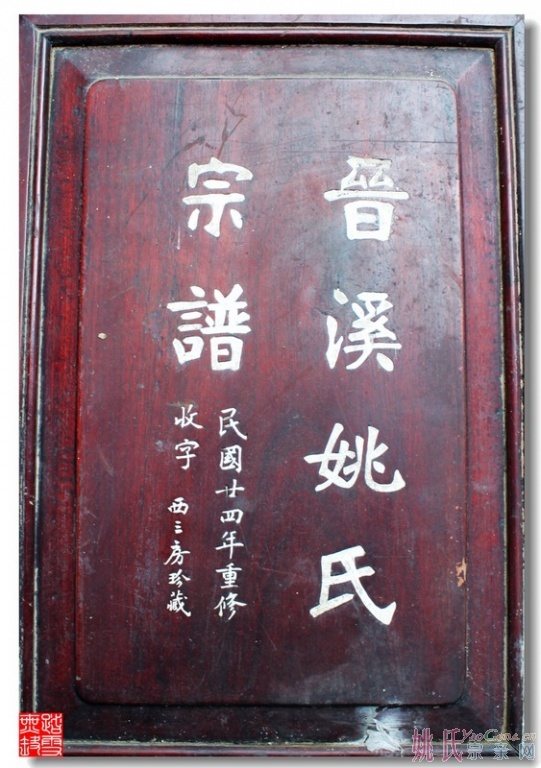 晉溪姚氏
宗譜
民國廿四年重修
收字 西三房珍藏
姚氏宗亲网
YaoGens.cn